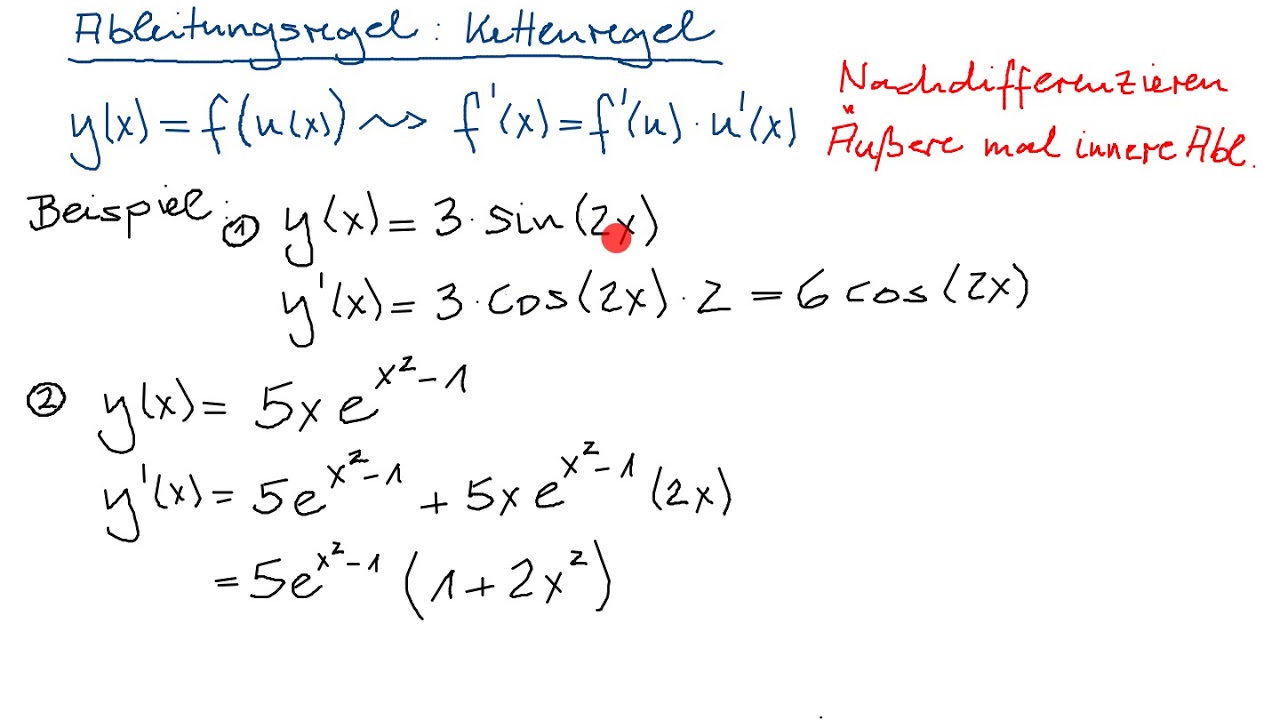 Ableitungsregel: Kettenregel
y(x) = f(u(x)) ⇝ f'(x) = f'(u) · u'(x)
Nachdifferenzieren
Äußere mal innere Abl.
Beispiel: ① y(x) = 3 · sin(2x)
y'(x) = 3 · cos(2x) · 2 = 6 cos(2x)
② y(x) = 5x e^{x² - 1}
y'(x) = 5e^{x² - 1} + 5x e^{x² - 1} (2x)
= 5e^{x² - 1} (1 + 2x²)